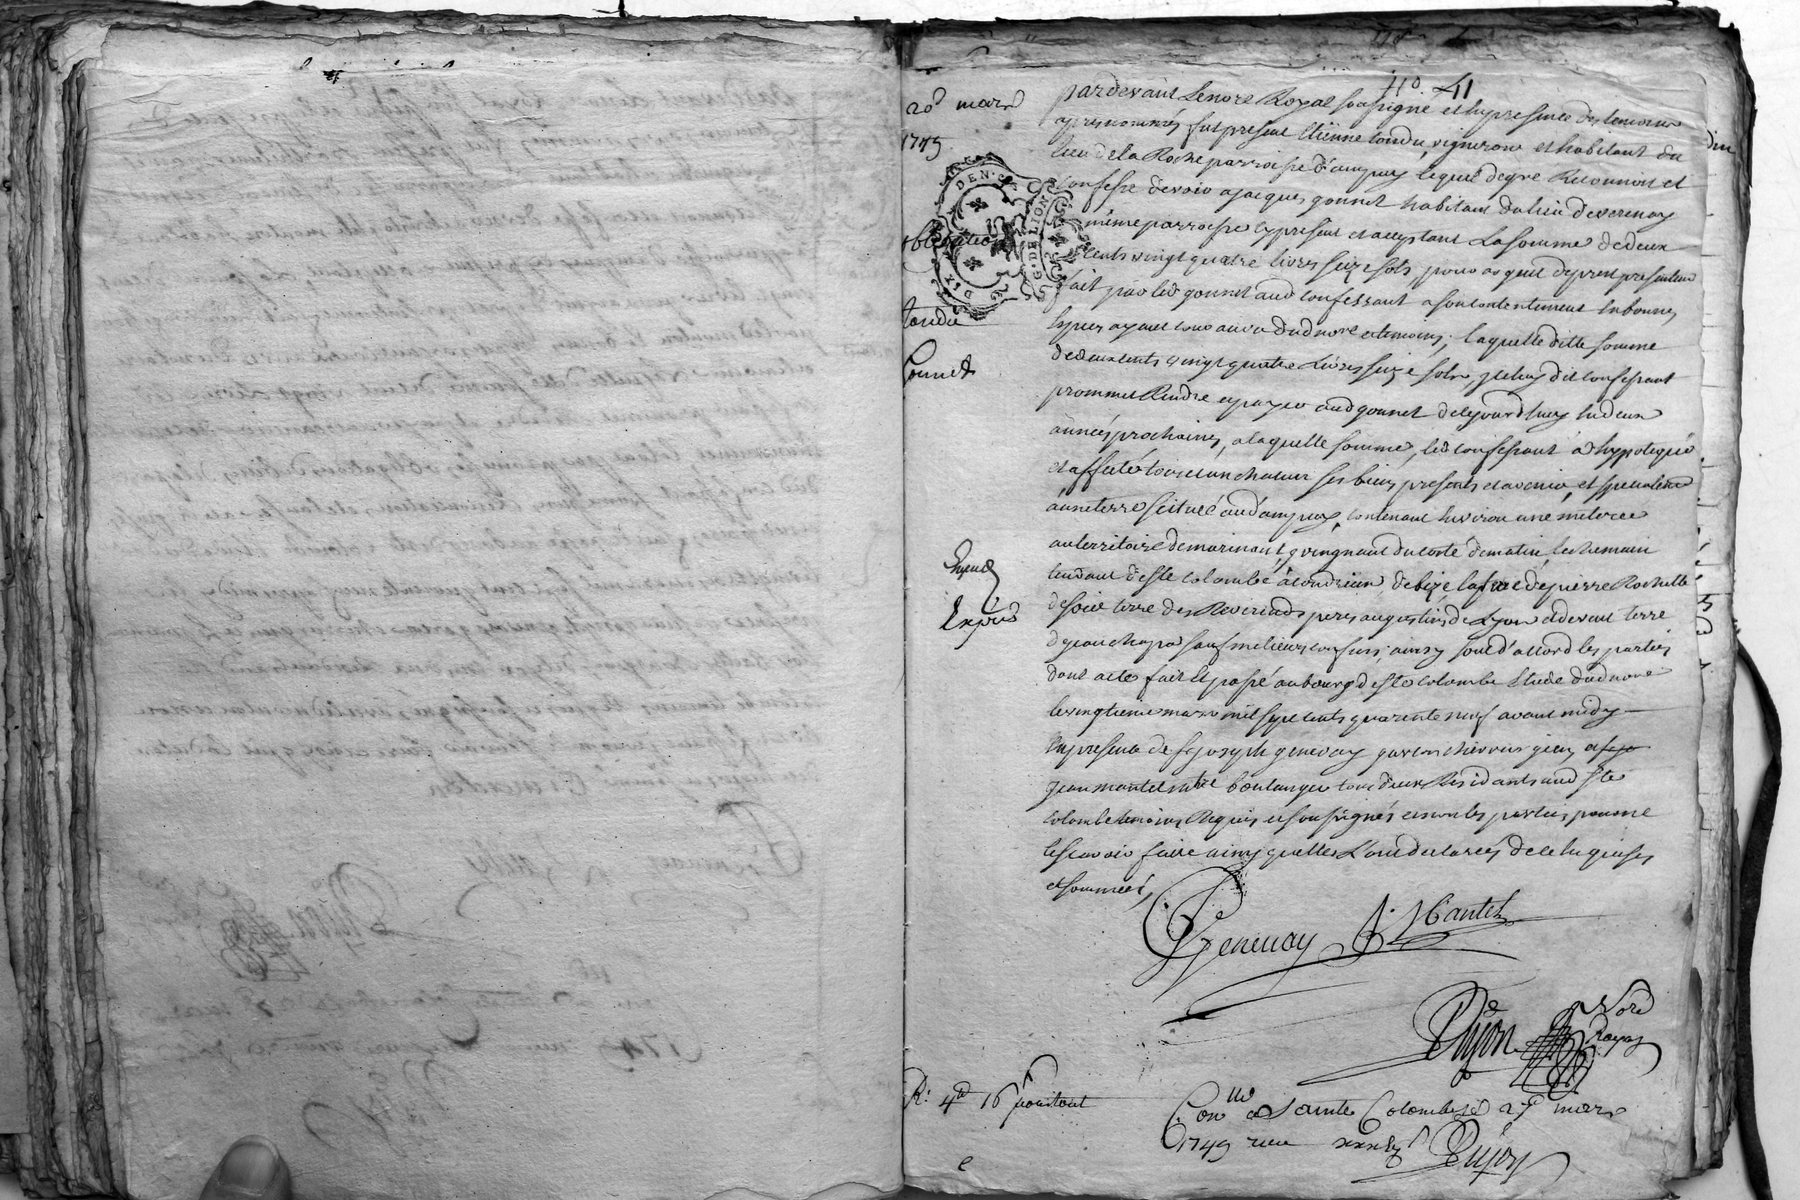 No. 41
20 mars
1749
obligation
tondu
Gonnet
Expedié
Exped
DEN.
G. DE LION
DIX
pardevant Le nore Royal soussigné et En presence des temoins
apres nommes fut present Etienne tondu, vigneron et habitant du
lieu de la Roche parroisse d'ampuy, lequel de gré Reconnoit et
Confesse devoir a jacques gonnet habitant du lieu de verenay
même parroisse Cy present et acceptant La somme de deux
Cents vingt quatre livres seize sols, pour argent de prest presentement
fait par led gonnet aud confessant a son contentement En bonnes
Especes ayant cours au vû dud nore et temoins; laquelle ditte somme
de deux cents vingt quatre Livres seize sols, led confessant
promet Rendre et payer aud gonnet de ce jourd'huy En deux
années prochaines, a laquelle somme, led confessant a hypotequé
et affecté tous et un chacun ses biens presents et avenir, et specialemt
à une terre scituée aud ampuy, contenant Environ une meterée
au territoire de marinant, joingnant du costé de matin le chemin
tendant de ste colombe à condrieu, de bize la terre de pierre Rochette
de soir terre des Reverends peres augustins de Lyon et de vent terre
de jean chapas sauf meilleurs confins, ainsy sont d'accord les parties
dont acte fait et passé au bourg de ste colombe Etude dud nore
le vingtieme mars mil sept cents quarante neuf avant midy
En presence de sr joseph genevay garcon chirurgien, et sr
jean mantel mtre boulanger tous deux Residants aud ste
colombe temoins Requis et soussignés et non les parties pour ne
le scavoir faire ainsy quelles L'ont declaré de ce Enquises
et sommées,
Genevay J. Mantel
Dujon Nore
Royal
R: 4d 16s pour tout
Conlle a Sainte Colombe le 27e mars
1749 recu
Dujon